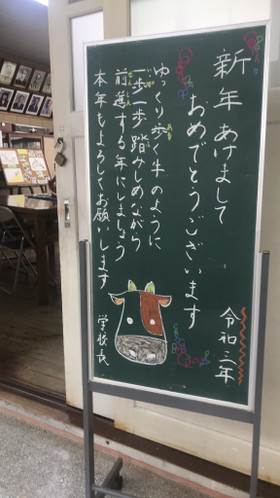 新年 あけまして
おめでとうございます
ゆっくり歩く牛のように
一歩一歩踏みしめながら
前進する年にしましょう
本年もよろしくお願いします
令和三年
学校長